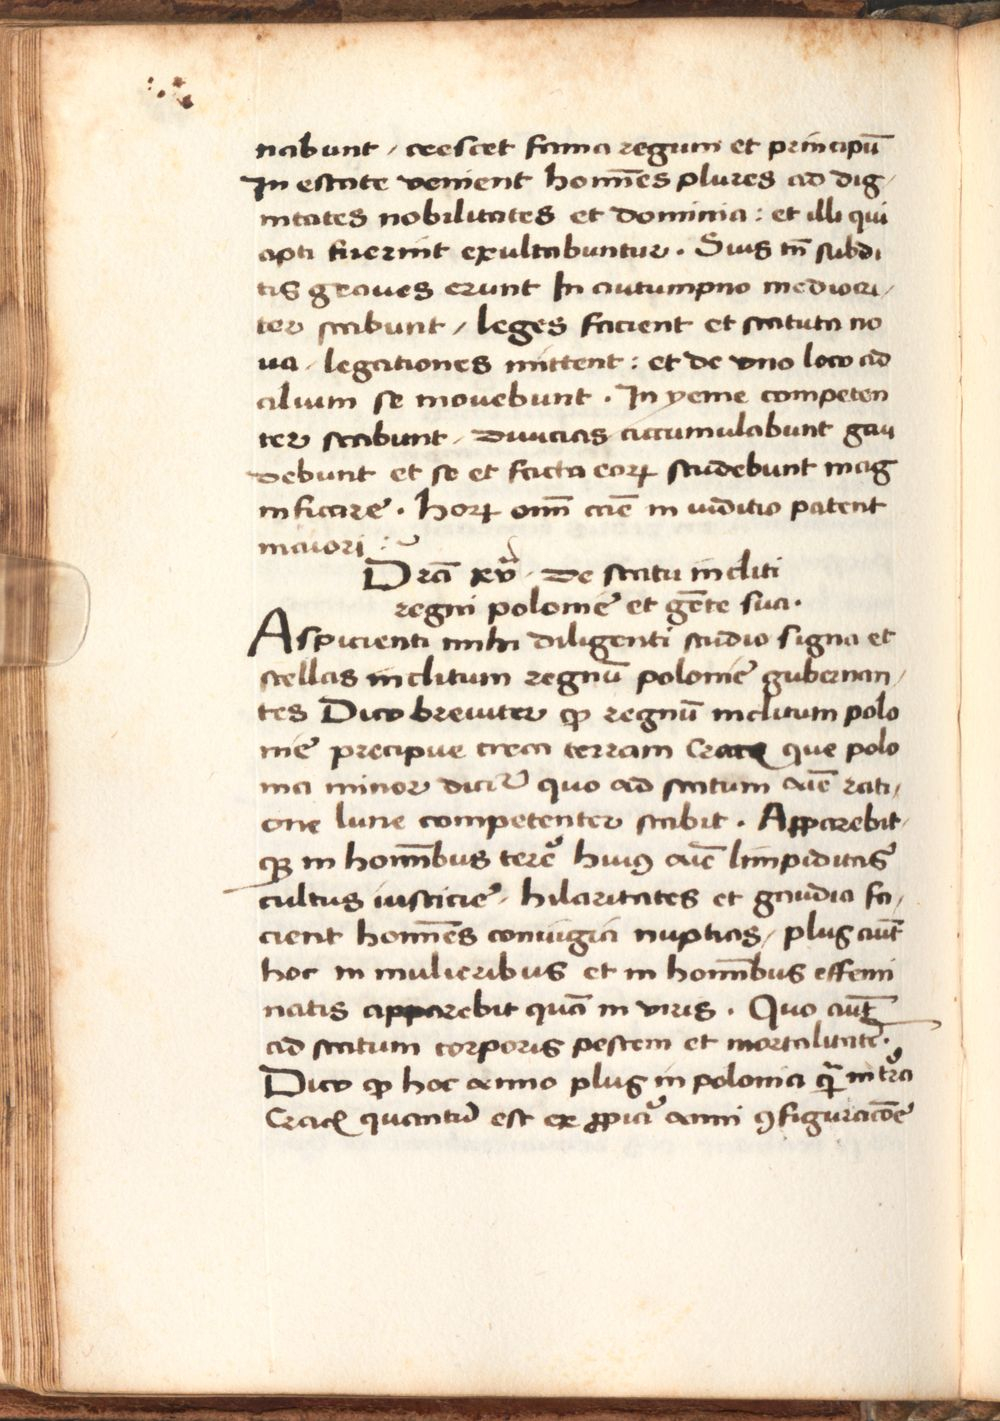 nabunt / crescet fama regum et principū
In estate venient homīes plures ad dig/
nitates nobilitates et dominia : et illi qui
apti fuerint exultabuntur . Suis tn̄ subdi
tis graves erunt In autumpno mediocri/
ter stabunt / leges facient et statuta no
va / legationes mittent : et de vno loco ad
alium se movebunt . In yeme competen
ter stabunt / divicias accumulabunt gau
debunt et se et facta eoꝝ studebunt mag
nificare . Hoꝝ omī cāē in iuditio patent
maiori :
Drā xvᵃ . de statu incliti
regni polonie et gēte sua .
Aspicienti mihi diligenti studio signa et
stellas inclitum regnū polonie gubernan/
tes Dico breviter ꝙ regnū inclitum polo
nie precipue circa terram Crac que polo
nia minor dicit quo ad statum aūē rati/
one lune competenter stabit . Apparebit
qꝫ in homībus terre huiꝯ aūē limpiditas
cultus iusticie / hilaritates et gaudia fa/
cient homīes convigia nuptias / plus aūt
hoc in mulieribus et in homībus effemi
natis apparebit quā in viris . Quo aūt
ad statum corporis pestem et mortalitatē .
Dico ꝙ hoc anno plus in polonia in trā
Crac quantū est ex anni ꝯfiguracōē